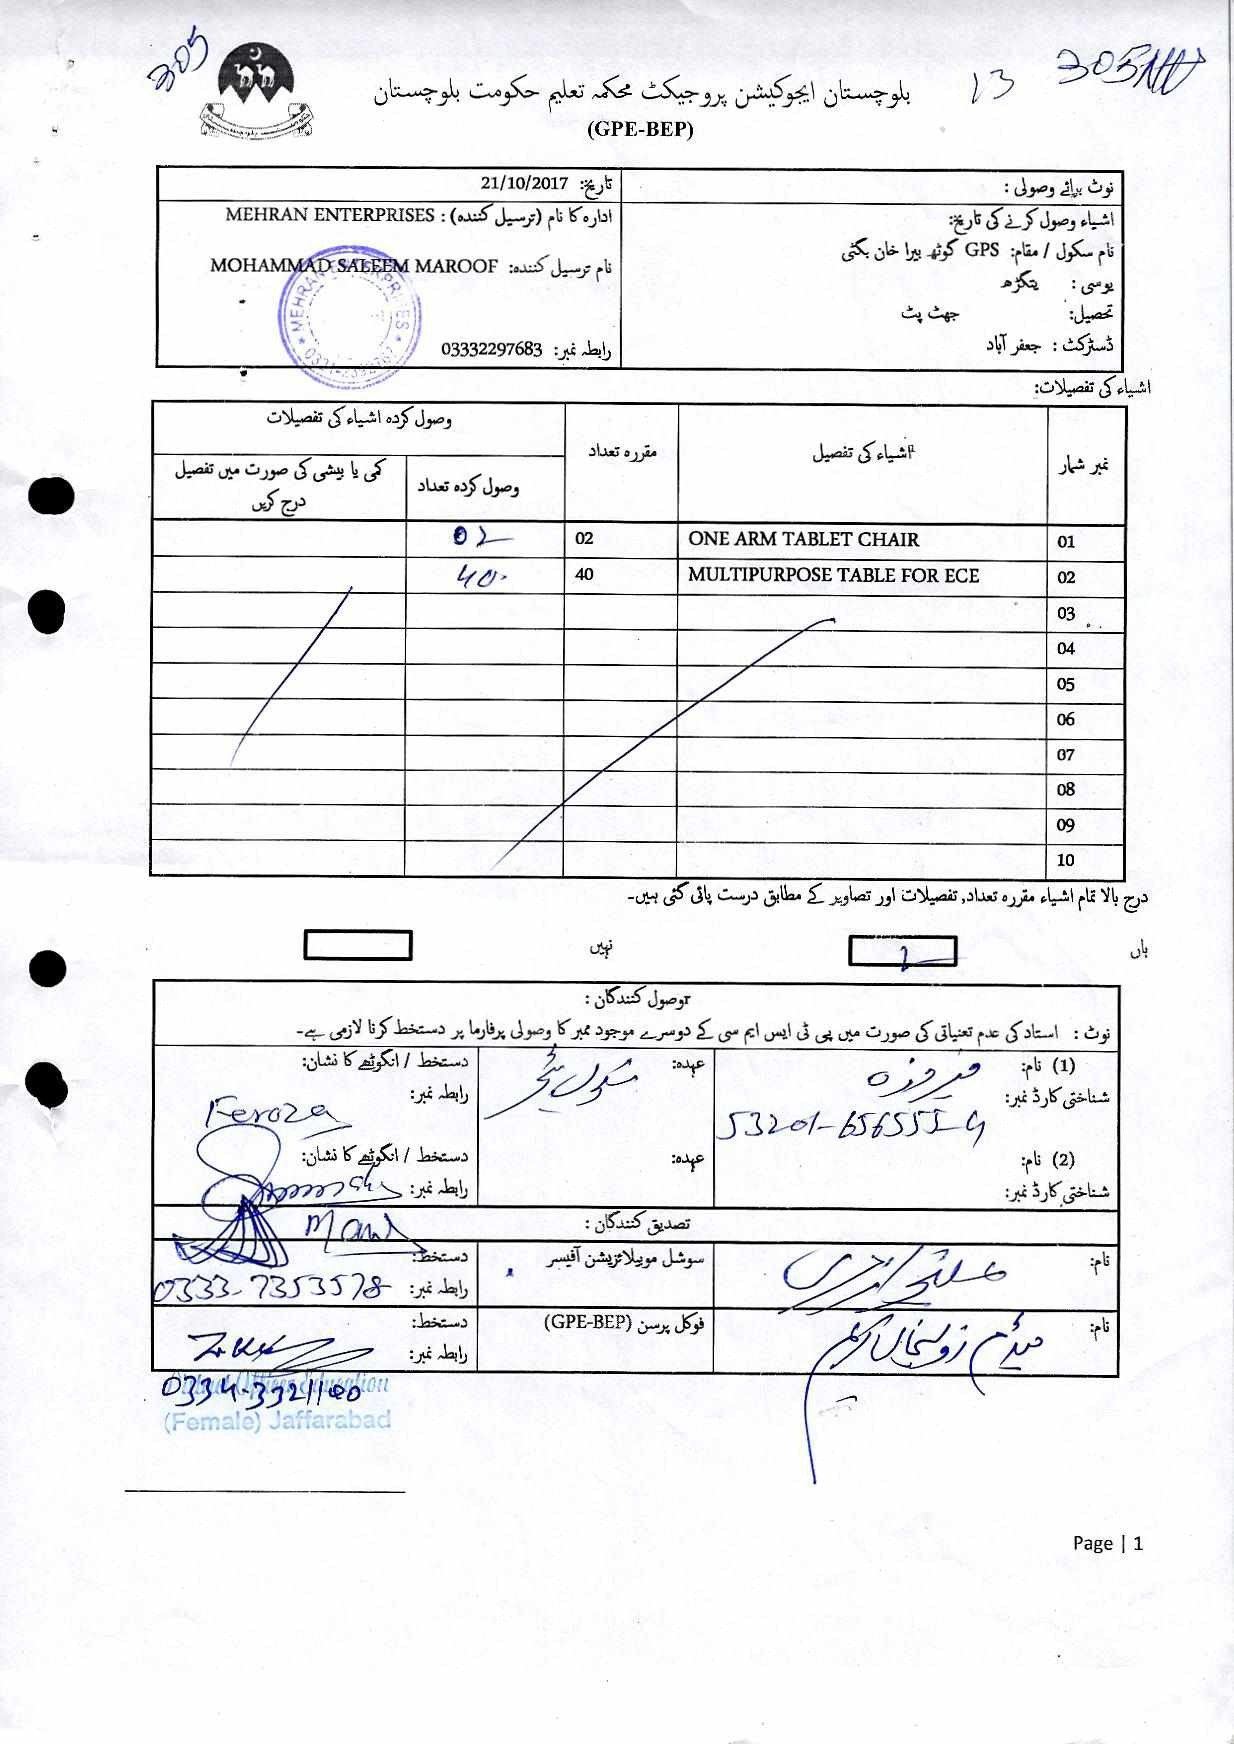 305
13
305
بلوچستان ایجوکیشن پروجیکٹ محکمہ تعلیم حکومت بلوچستان
(GPE-BEP)
نوٹ برائے وصولی :
تاریخ: 21/10/2017
اشیاء وصول کرنے کی تاریخ:
نام سکول / مقام: GPS گوٹھ بیرا خان بگٹی
یوسی :
تحصیل: جھٹ پٹ
ڈسٹرکٹ : جعفر آباد
ادارہ کا نام (ترسیل کنندہ) : MEHRAN ENTERPRISES
نام ترسیل کنندہ: MOHAMMAD SALEEM MAROOF
رابطہ نمبر: 03332297683
MEHRAN ENTERPRISES
اشیاء کی تفصیلات:
نمبر شمار اشیاء کی تفصیل مقررہ تعداد وصول کردہ اشیاء کی تفصیلات
وصول کردہ تعداد کمی یا بیشی کی صورت میں تفصیل درج کریں
01 ONE ARM TABLET CHAIR 02 02
02 MULTIPURPOSE TABLE FOR ECE 40 40
03
04
05
06
07
08
09
10
درج بالا تمام اشیاء مقررہ تعداد, تفصیلات اور تصاویر کے مطابق درست پائی گئی ہیں۔
ہاں
نہیں
وصول کنندگان :
نوٹ : استاد کی عدم تعیناتی کی صورت میں پی ٹی ایس ایم سی کے دوسرے موجود ممبر کا وصولی پرفارما پر دستخط کرنا لازمی ہے۔
(1) نام: فیروزہ
شناختی کارڈ نمبر:
عہدہ: سکول ٹیچر
دستخط / انگوٹھے کا نشان:
رابطہ نمبر:
Feroza
(2) نام:
شناختی کارڈ نمبر:
عہدہ:
دستخط / انگوٹھے کا نشان:
رابطہ نمبر:
تصدیق کنندگان :
نام:
سوشل موبیلائزیشن آفیسر
دستخط:
رابطہ نمبر: 0333-7353578
نام:
فوکل پرسن (GPE-BEP)
دستخط:
رابطہ نمبر:
(Female) Jaffarabad
Page | 1